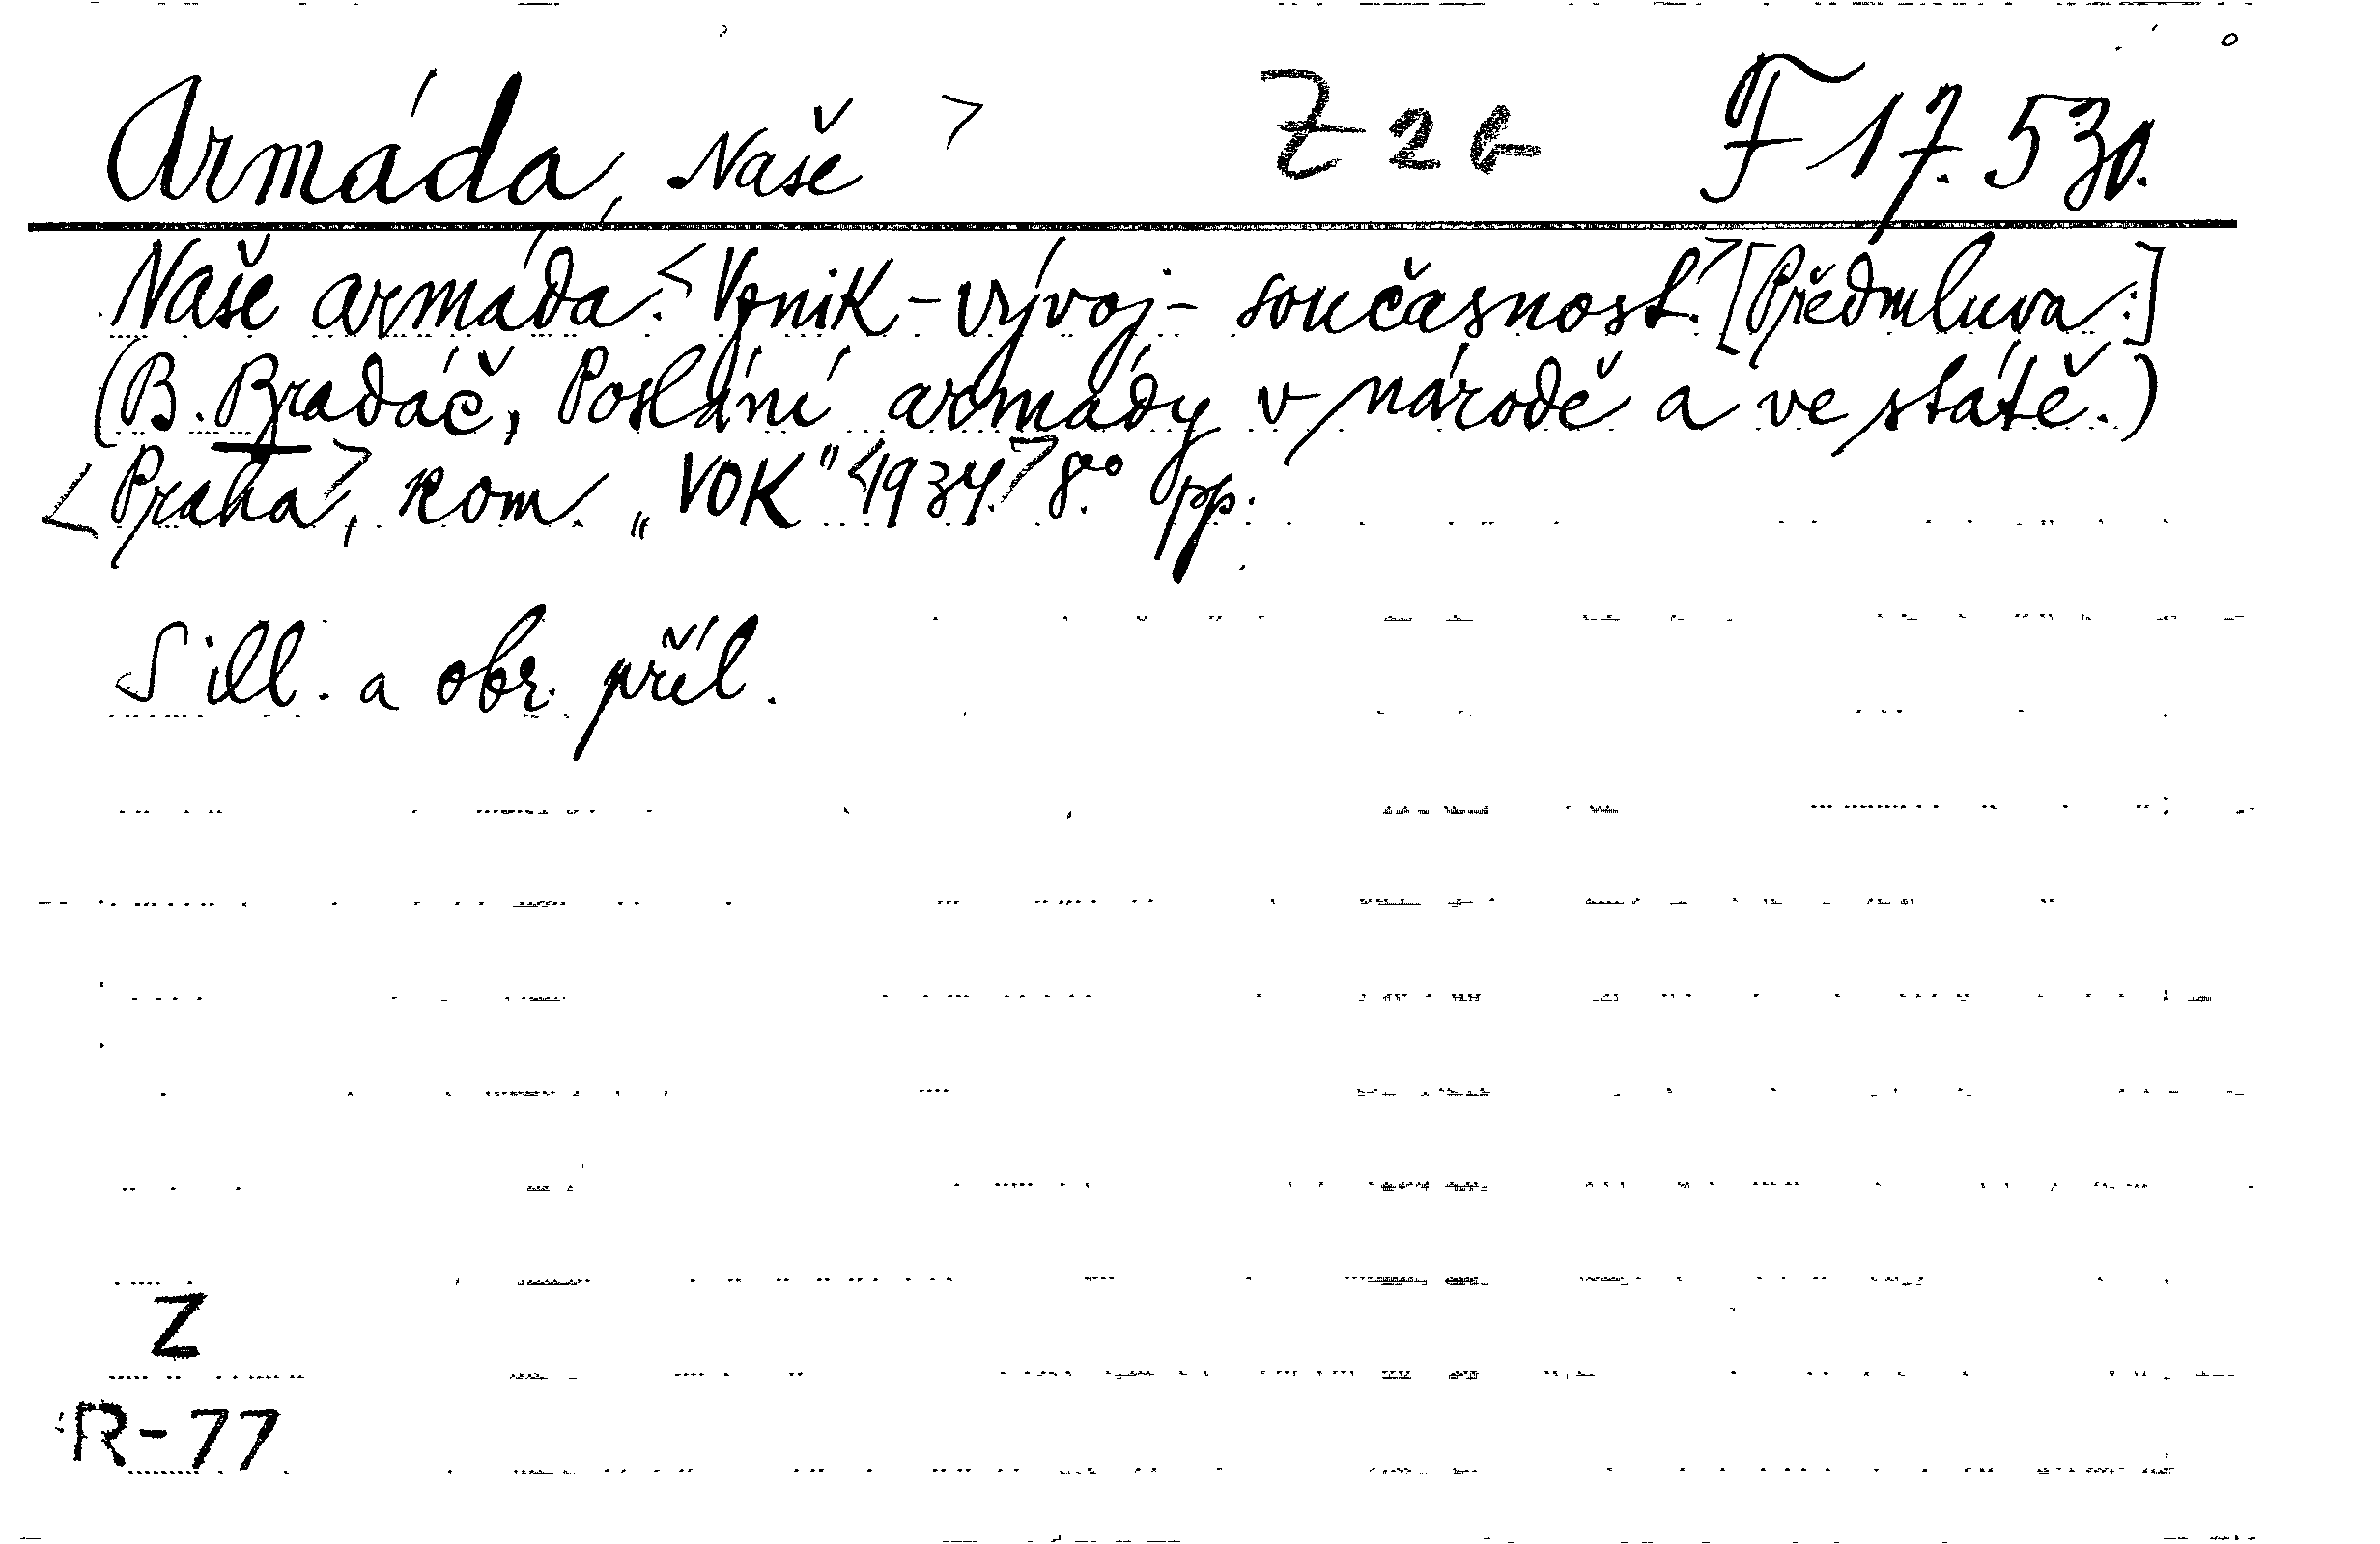 Armáda, Naše > Z 26 F 17.530.
Naše armáda. <Vznik - vývoj - současnost.> [Předmluva:]
(B. Bradáč, Poslání armády v národě a ve státě.)
<Praha>, kom. „VOK" <1934.> 8.º pp.
S ill. a obr. příl.
Z
R-77